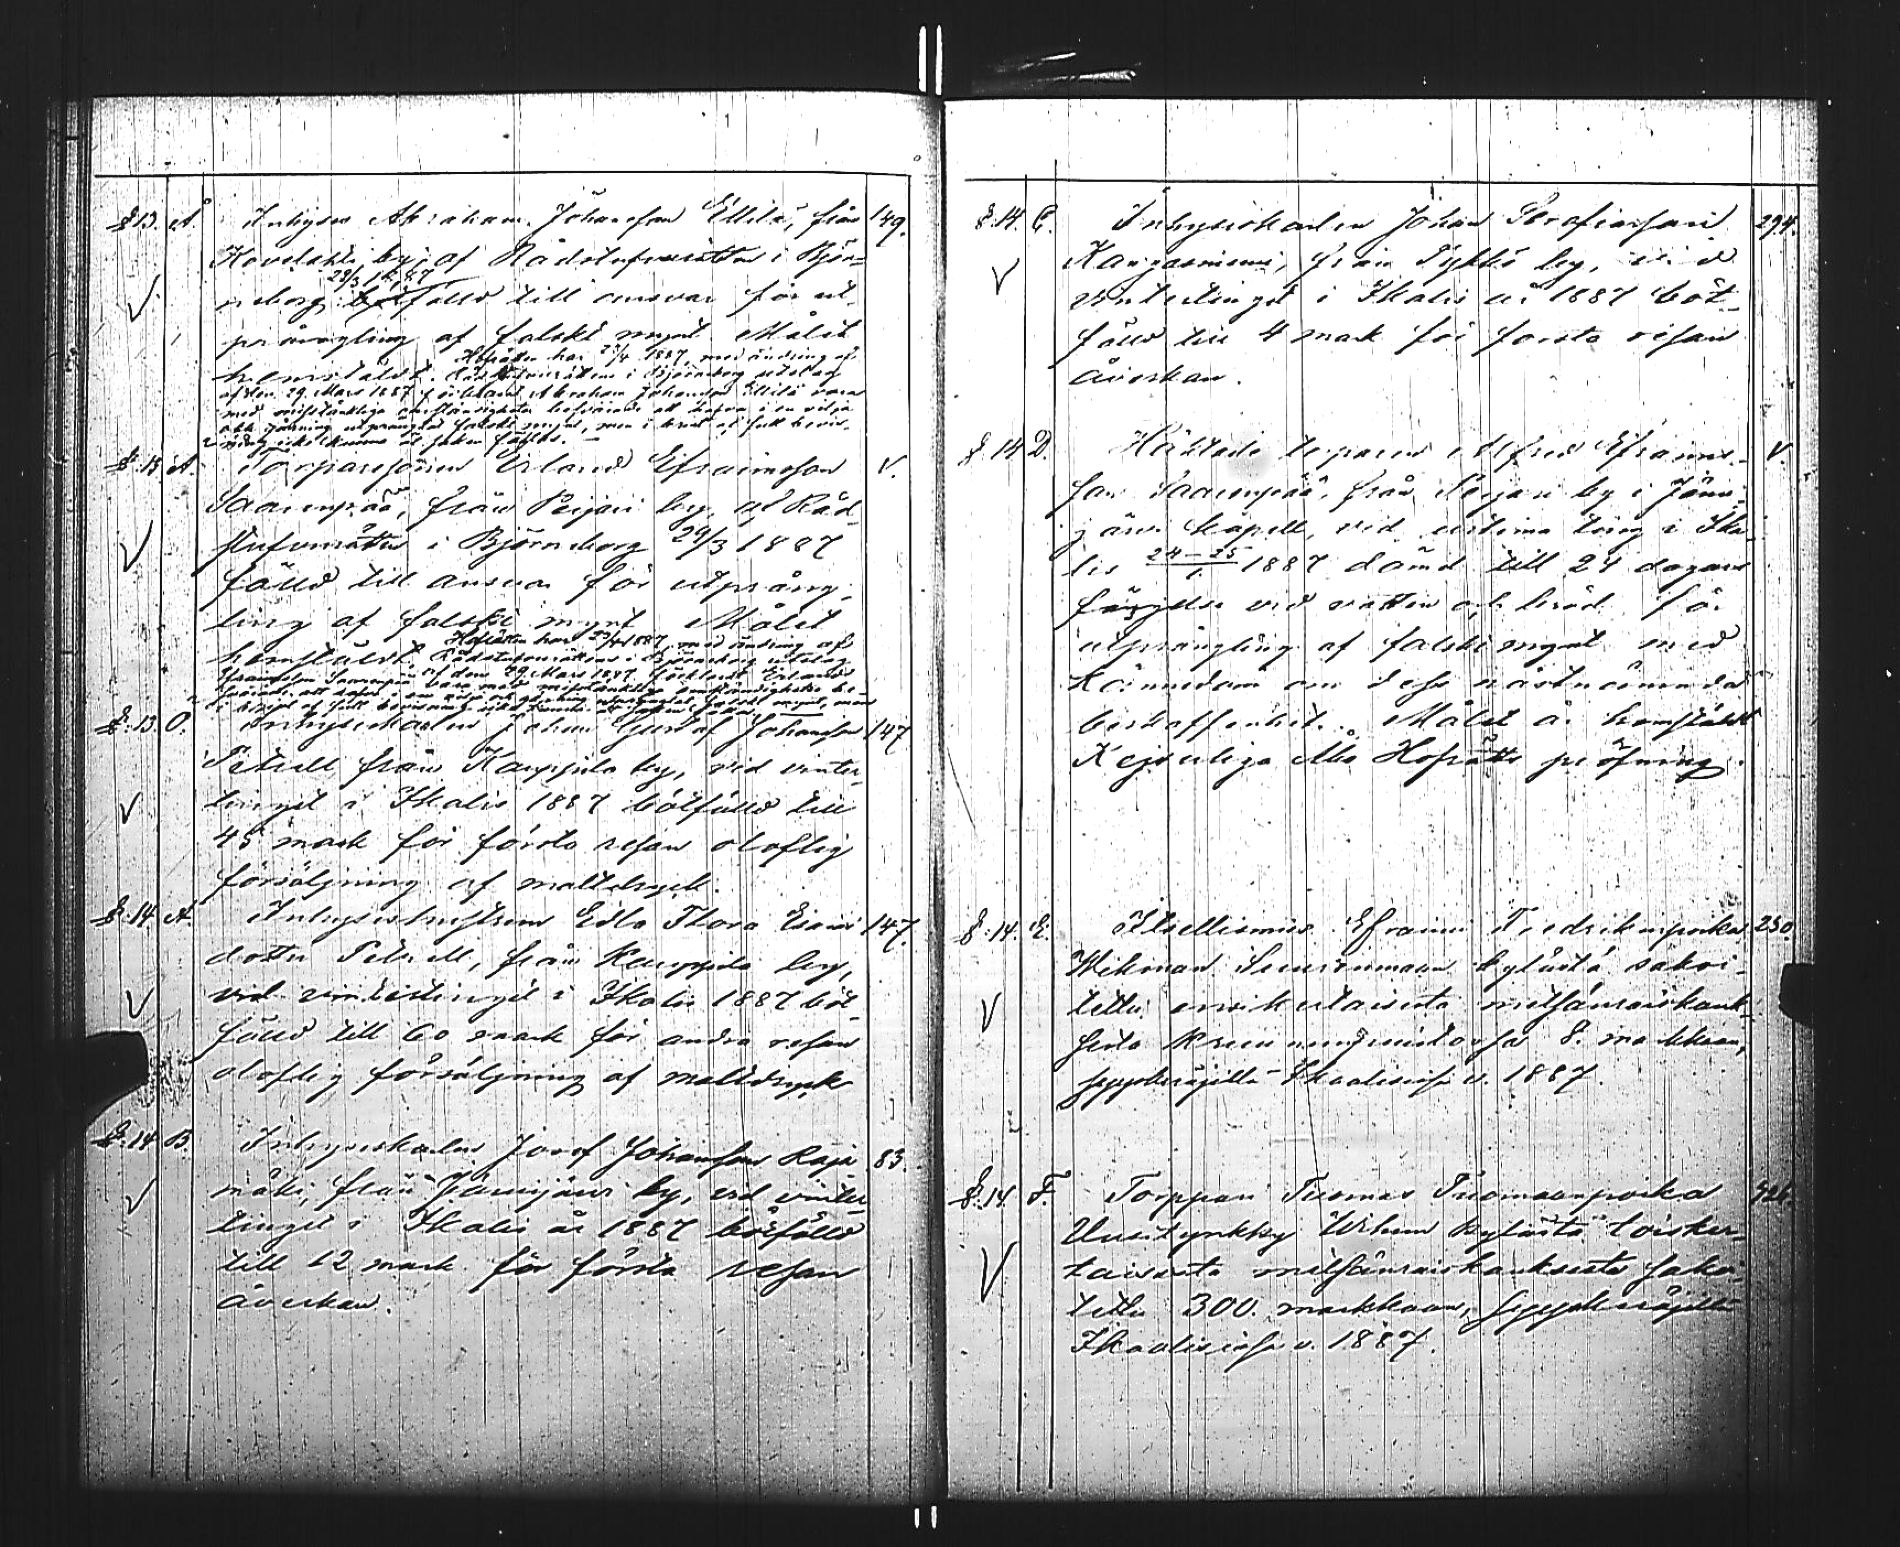 § 13. Å. Inhyses Abraham Johansson Ellilä, från 149.
Kovelahti by, af Rådstufvurätten i Björ-
neborg 29/3 1887 fälld till ansvar för ut-
prångling af falskt mynt. Målet
hemstäldt. Hofrätten har 23/4 1887, med ändring af
Rådstufvurättens i Björneborg utslag
af den 29 Mars 1887 förklarat Abraham Johansson Ellilä vara
med misstänkliga omständigheter besvärad att hafva i en vilja
och gärning utprånglat falskt mynt, men i brist af full bevis-
ning icke kunna åt saken fällas.
§. 13 Ä. Torparesonen Erland Efraimsson V.
Saarenpää, från Peijari by, af Råd-
stufvurätten i Björneborg 29/3 1887
fälld till ansvar för utpräng-
ling af falskt mynt. Målet
hemstäldt. Hofrätten har 23/4 1887, med ändring af
Rådstufvurättens i Björneborg utslag
af den 29 Mars 1887, förklarat Erland
Efraimsson Saarenpää vara med misstänkliga omständigheter be-
svärad att hafva i en vilja och gärning utprånglat falskt mynt, men
i brist af full bevisning icke kunna åt saken fällas.
§. 13. Ö. Inhyseskarlen Johan Gustaf Johansson 147
Petrell från Kauppila by, vid vinter-
tinget i Ikalis 1887 bötfälld till
45 mark för första resan oloflig
försäljning af maltdryck.
§. 14. A. Inhyseshustrun Edla Flora Esaias 147.
dotter Petrell, från Kauppila by,
vid vintertinget i Ikalis 1887 böt-
fälld till 60 mark för andra resan
oloflig försäljning af maltdryck
§. 14 B. Inhyseskarlen Josef Johansson Raja 83.
mäki, från Jämijärvi by, vid vinter-
tinget i Ikalis år 1887 bötfälld
till 12 mark för första resan
åverkan.
§. 14. C. Inhyseskarlen Johan Serafiansson 294.
Kangasniemi, från Tykkö by, vid
vintertinget i Ikalis år 1887 böt-
fälld till 4 mark för första resan
åverkan.
§. 14 D. Häktade torparen Alfred Efraims- V.
son Saarenpää, från Peijari by i Jämi-
järvi kapell, vid urtima ting i Ika-
lis 24–25/1. 1887 dömd till 24 dagars
fängelse vid vatten och bröd för
utprångling af falskt mynt med
kännedom om dess nästnämnda
beskaffenhet. Målet är hemstäldt
Kejserliga Åbo Hofrätts pröfning.
§. 14. E. Itsellismies Efraim Fredrikinpoika 250.
Wikman Suurimaan kylästä sakoi-
tettu ensikertaisesta metsänraiskauk-
sesta kruununpuistossa 8. markkaan,
syyskäräjillä Ikaalisissa v. 1887.
§. 14. F. Torppari Tuomas Tuomaanpoika 326.
Uusitynkky Wihun kylästä toisker-
taisesta metsänraiskauksesta sakoi-
tettu 300. markkaan, syyskäräjillä
Ikaalisissa v. 1887.